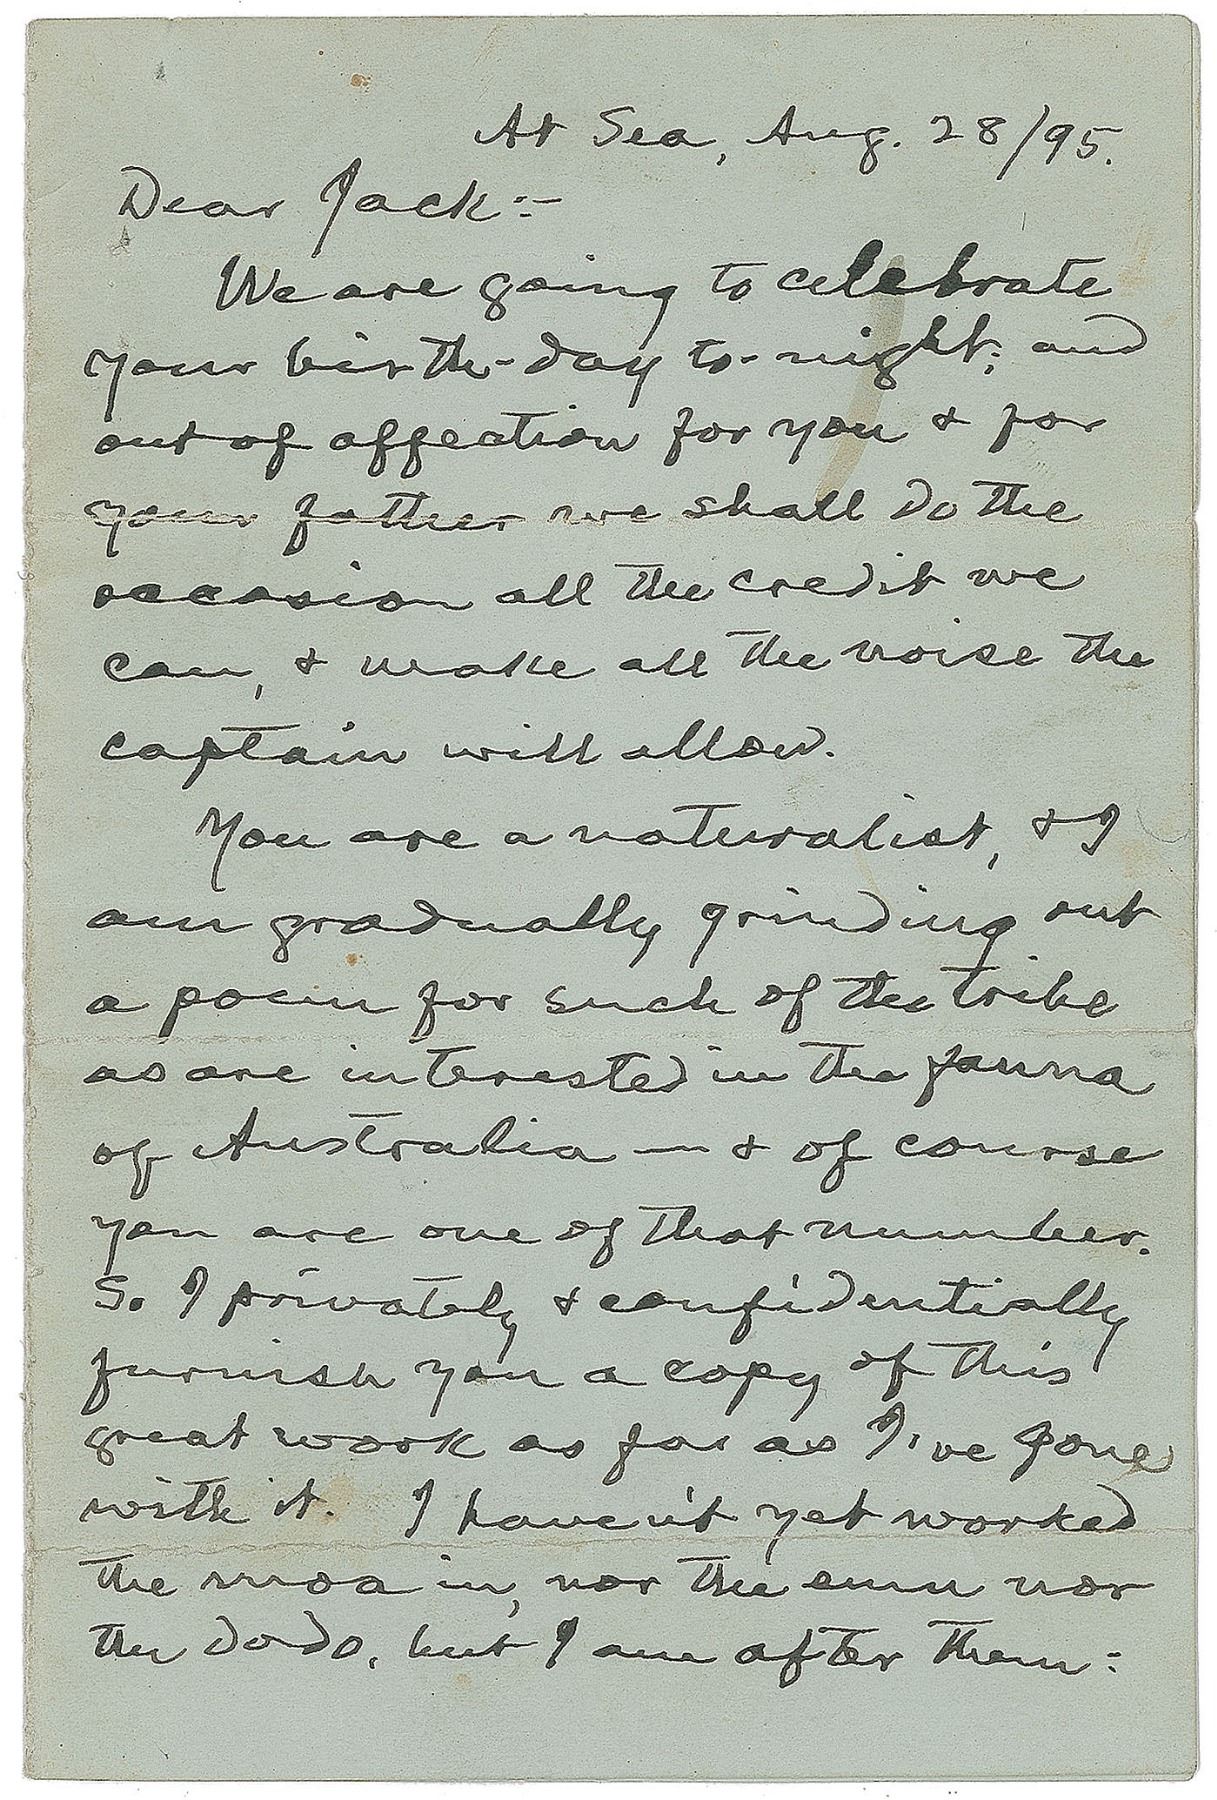 At Sea, Aug. 28/95.
Dear Jack:-
We are going to celebrate
your birth-day to-night; and
out of affection for you & for
your father we shall do the
occasion all the credit we
can, & make all the noise the
captain will allow.
You are a naturalist, & I
am gradually grinding out
a poem for such of the tribe
as are interested in the fauna
of Australia — & of course
you are one of that number.
So I privately & confidentially
furnish you a copy of this
great work as far as I've gone
with it. I haven't yet worked
the moa in, nor the emu nor
the dodo, but I am after them: